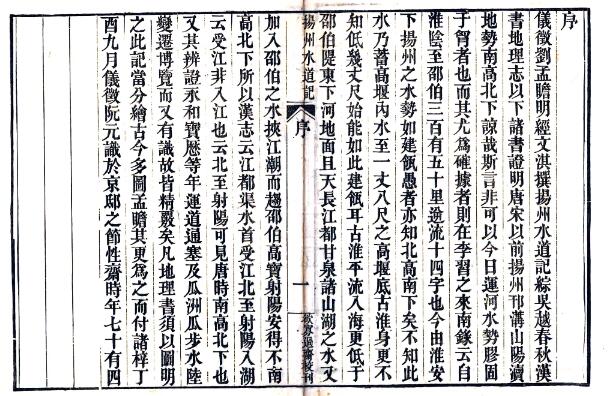 序
儀徵劉孟瞻明經文淇撰揚州水道記綜吳越春秋漢
書地理志以下諸書證明唐宋以前揚州邗溝山陽瀆
地勢南高北下諒哉斯言非可以今日運河水勢膠固
于胷者也而其尤爲確據者則在李習之來南錄云自
淮陰至邵伯三百有五十里逆流十四字也今由淮安
下揚州之水勢如建瓴愚者亦知北高南下矣不知此
水乃蓄高堰內水至一丈八尺之高堰底古淮身更不
知低幾丈尺始能如此建瓴耳古淮平流入海更低于
邵伯隄東下河地面且天長江都甘泉諸山湖之水又
揚州水道記
序
一
齋校刊
加入邵伯之水挾江潮而趨邵伯高寶射陽安得不南
高北下所以漢志云江都渠水首受江北至射陽入湖
云受江非入江也云北至射陽可見唐時南高北下也
又其辨證永和寶厯等年運道通塞及瓜洲瓜步水陸
變遷博覽而又有識故皆精覈矣凡地理書須以圖明
之此記當分繪古今多圖孟瞻其更爲之而付諸梓丁
酉九月儀徵阮元識於京邸之節性齋時年七十有四